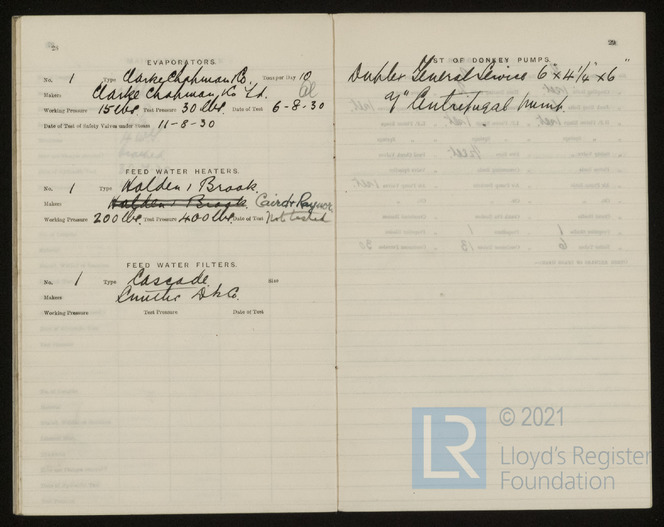 28
EVAPORATORS.
No. 1 Type Clarke Chapman & Co. Tons per Day 10
Makers Clarke Chapman, & Co Ld.
Working Pressure 15 lbs. Test Pressure 30 lbs. Date of Test 6-8-30
Date of Test of Safety Valves under Steam 11-8-30
FEED WATER HEATERS.
No. 1 Type Holden & Brook.
Makers Holden & Brook Caird & Raynor
Working Pressure 200 lbs. Test Pressure 400 lbs. Date of Test Not tested
FEED WATER FILTERS.
No. 1 Type Cascade. Size
Makers
Working Pressure Test Pressure Date of Test
29
LIST OF DONKEY PUMPS.
Duplex General Service 6" x 4 1/4" x 6"
9" Centrifugal pump.
LR
© 2021
Lloyd's Register
Foundation